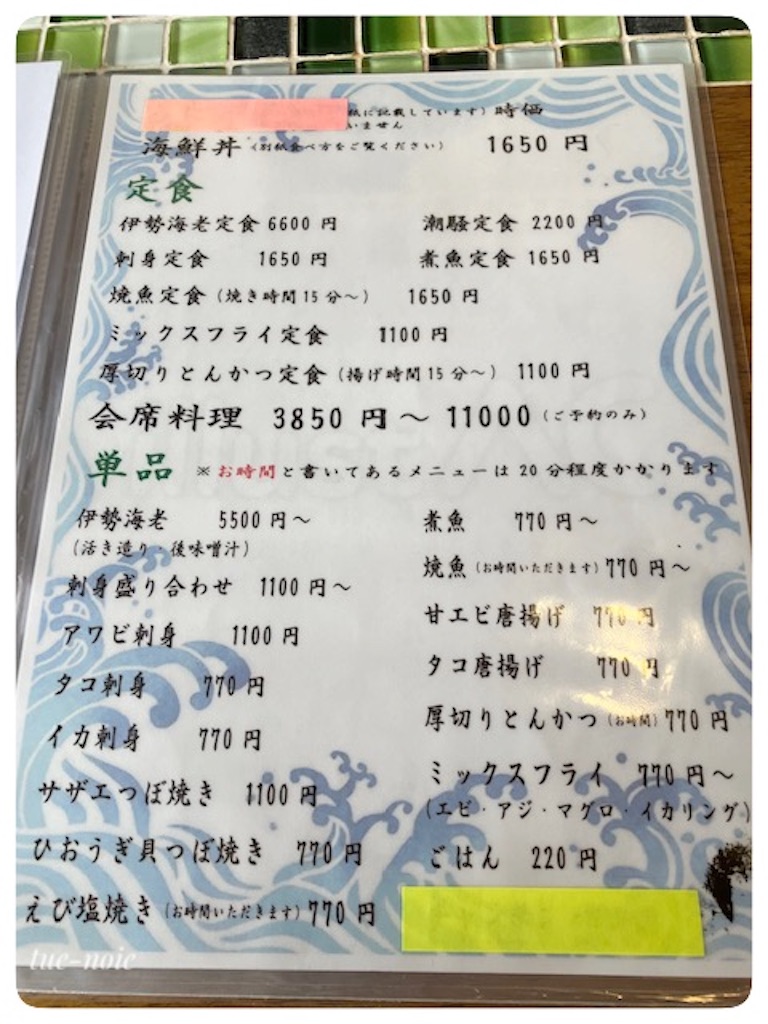 紙に記載しています）時価
いません
海鮮丼（別紙食べ方をご覧ください） 1650 円
定食
伊勢海老定食 6600 円
潮騒定食 2200 円
刺身定食 1650 円
煮魚定食 1650 円
焼魚定食（焼き時間15分～） 1650 円
ミックスフライ定食 1100 円
厚切りとんかつ定食（揚げ時間15分～） 1100 円
会席料理 3850 円～ 11000（ご予約のみ）
単品 ※お時間と書いてあるメニューは 20 分程度かかります
伊勢海老 5500 円～
（活き造り・後味噌汁）
刺身盛り合わせ 1100 円～
アワビ刺身 1100 円
タコ刺身 770 円
イカ刺身 770 円
サザエつぼ焼き 1100 円
ひおうぎ貝つぼ焼き 770 円
えび塩焼き（お時間いただきます）770 円
煮魚 770 円～
焼魚（お時間いただきます）770 円～
甘エビ唐揚げ 770 円
タコ唐揚げ 770 円
厚切りとんかつ（お時間）770 円
ミックスフライ 770 円～
（エビ・アジ・マグロ・イカリング）
ごはん 220 円
tuc-noie